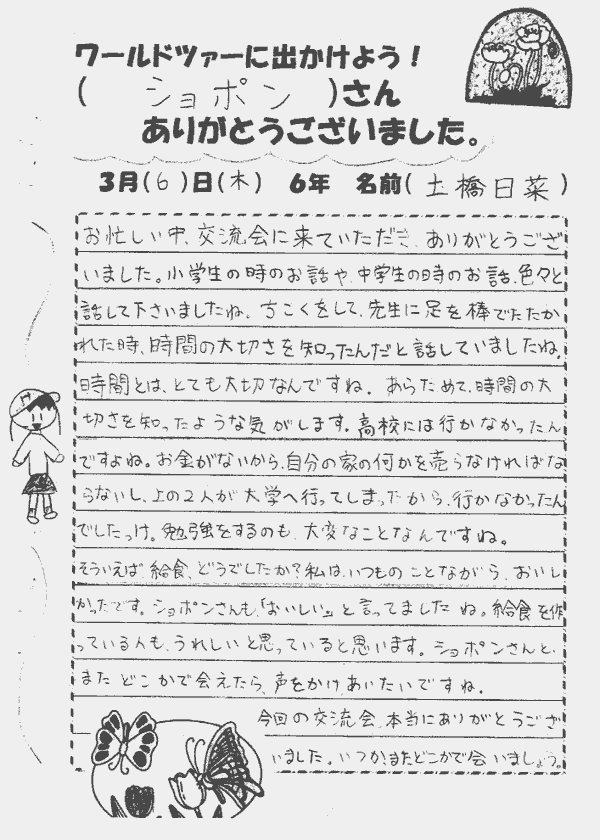 ワールドツァーに出かけよう!
( ショポン )さん
ありがとうございました。
3月(6)日(木) 6年 名前( 土橋日菜 )
お忙しい中、交流会に来ていただき、ありがとうござ
いました。小学生の時のお話や、中学生の時のお話、色々と
話して下さいましたね。ちこくをして、先生に足を棒でたたか
れた時、時間の大切さを知ったんだと話していましたね。
時間とは、とても大切なんですね。あらためて、時間の大
切さを知ったような気がします。高校には行かなかったん
ですよね。お金がないから、自分の家の何かを売らなければな
らないし、上の2人が大学へ行ってしまったから、行かなかったん
でしたっけ。勉強をするのも、大変なことなんですね。
そういえば、給食、どうでしたか?私は、いつものことながら、おいし
かったです。ショポンさんも、「おいしい。」と言ってました ね。給食を作
っている人も、うれしいと思っていると思います。ショポンさんと、
またどこかで会えたら、声をかけあいたいですね。
今回の交流会、本当にありがとうござ
いました。いつかまたどこかで会いましょう。